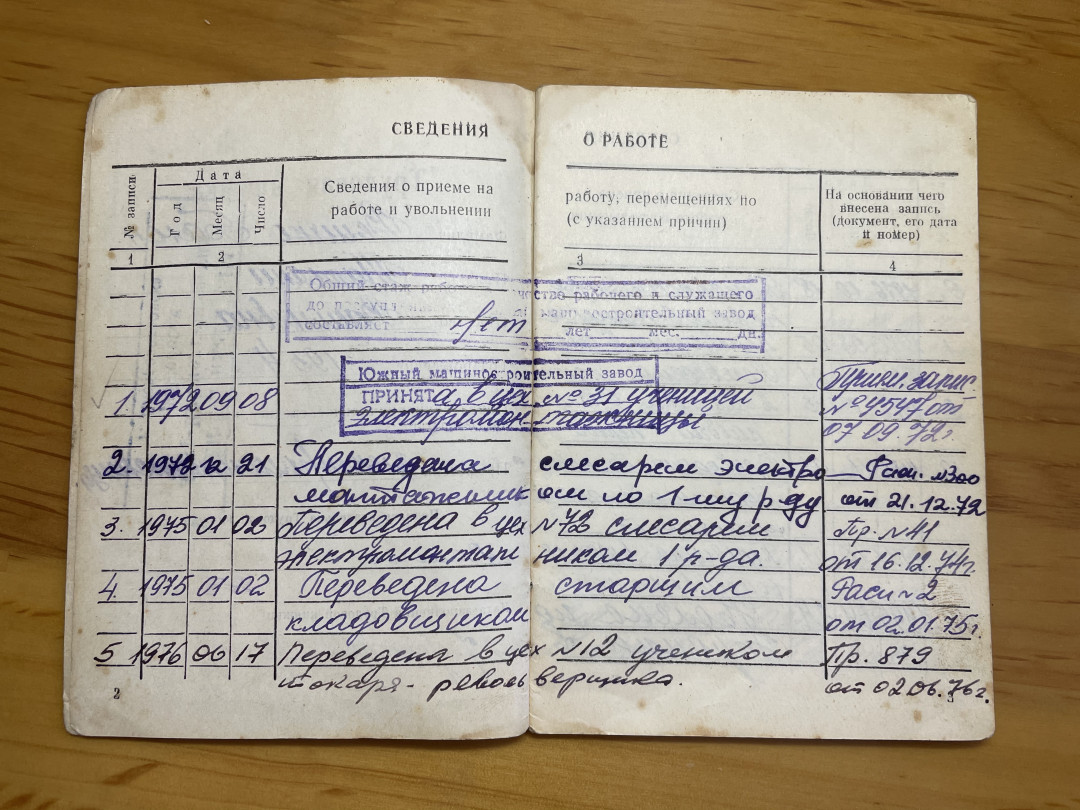 СВЕДЕНИЯ О РАБОТЕ
№ записи
Дата
Год
Месяц
Число
Сведения о приеме на работу, перемещениях по
работе и увольнении (с указанием причин)
На основании чего
внесена запись
(документ, его дата
и номер)
1 2 3 4
Общий стаж рабочего и служащего
до машиностроительный завод
составляет нет лет мес. дн.
Южный машиностроительный завод
1. 1972 09 08 ПРИНЯТа в цех № 31 ученицей
электромонтажницы
запис.
№ 4547 от
07 09. 72г.
2. 1972 12 21 Переведена слесарем электро- Расп. №300
монтажником по 1-му р-ду от 21.12.72
3. 1975 01 02 Переведена в цех №72 слесарем Пр. №41
электромонтажником 1 р-да. от 16.12.74г.
4. 1975 01 02 Переведена старшим Расп №2
кладовщиком от 02.01.75г.
5 1976 06 17 Переведена в цех №12 учеником Пр. 879
токаря-револьверщика. от 02.06.76г.
2 3